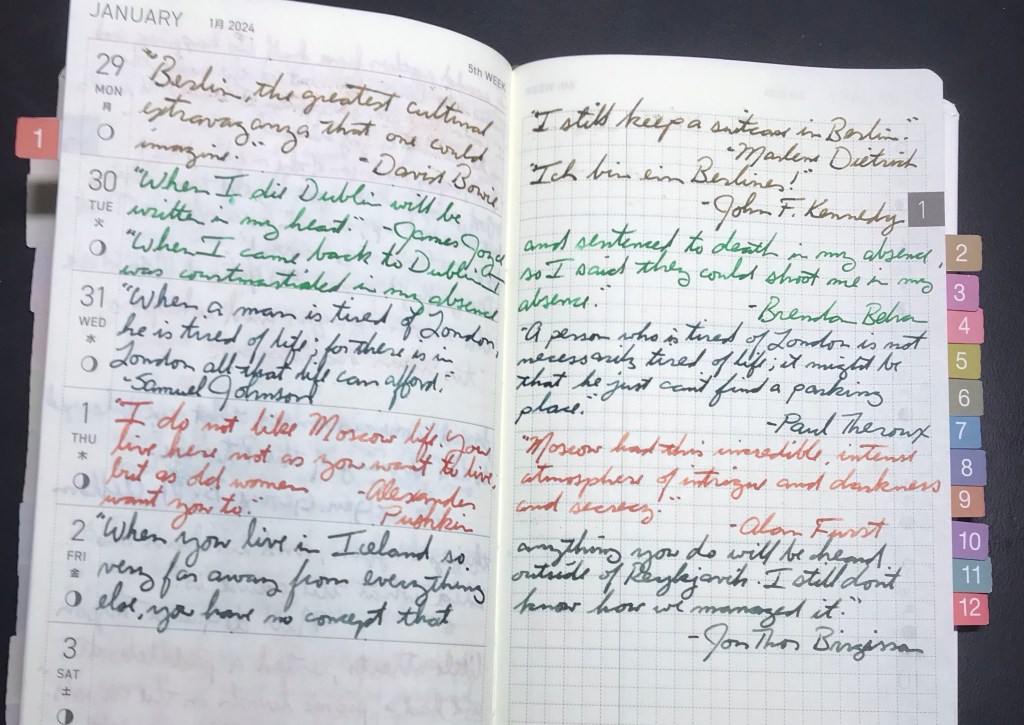 JANUARY 1月 2024
5th WEEK
29
MON
月
"Berlin, the greatest cultural
extravaganza that one could
imagine."
-David Bowie
30
TUE
火
"When I die Dublin will be
written in my heart." -James Joyce
"When I came back to Dublin I
was courtmartialed in my absence
31
WED
水
"When a man is tired of London,
he is tired of life; for there is in
London all that life can afford."
-Samuel Johnson
1
THU
木
"I do not like Moscow life. You
live here not as you want to live,
but as old women
want you to."
-Alexander
Pushkin
2
FRI
金
"When you live in Iceland so
very far away from everything
else, you have no concept that
3
SAT
土
"I still keep a suitcase in Berlin."
-Marlene Dietrich
"Ich bin ein Berliner!"
-John F. Kennedy
and sentenced to death in my absence,
so I said they could shoot me in my
absence."
-Brendan Behan
"A person who is tired of London is not
necessarily tired of life; it might be
that he just can't find a parking
place."
-Paul Theroux
"Moscow had this incredible, intense
atmosphere of intrigue and darkness
and secrecy."
-Alan Furst
anything you do will be heard
outside of Reykjavik. I still don't
know how we managed it."
-Jon Thor Birgisson
1
1
2
3
4
5
6
7
8
9
10
11
12